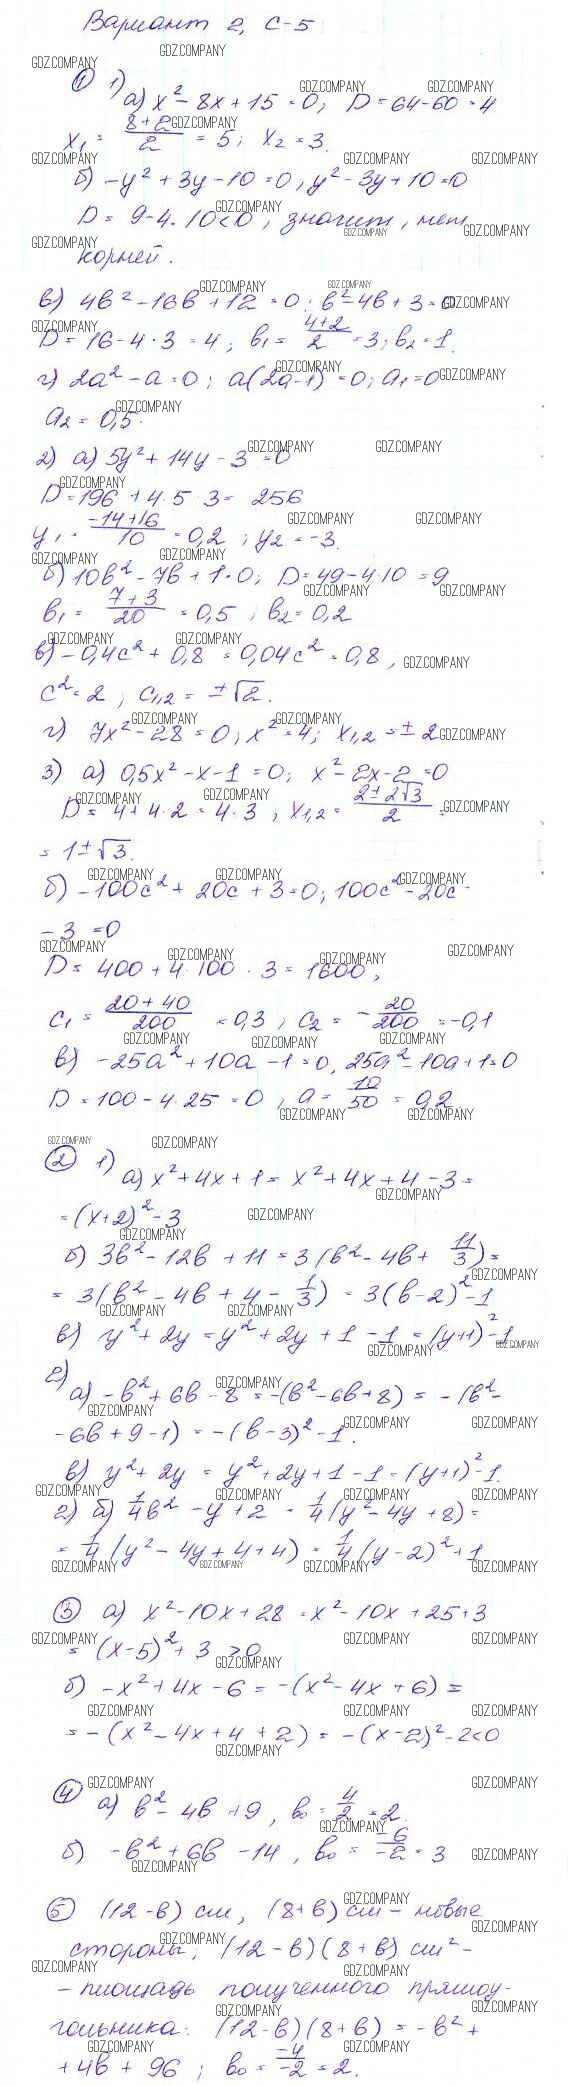 Вариант 2, С-5
① 1) а) x² - 8x + 15 = 0; D = 64 - 60 = 4
x₁ = (8+2)/2 = 5; x₂ = 3.
б) -y² + 3y - 10 = 0, y² - 3y + 10 = 0
D = 9 - 4·10 < 0, значит, нет
корней.
в) 4b² - 16b + 12 = 0; b² - 4b + 3 = 0
D = 16 - 4·3 = 4; b₁ = (4+2)/2 = 3; b₂ = 1.
г) 2a² - a = 0; a(2a-1) = 0; a₁ = 0
a₂ = 0,5.
2) а) 5y² + 14y - 3 = 0
D = 196 + 4·5·3 = 256
y₁ = (-14+16)/10 = 0,2; y₂ = -3.
б) 10b² - 7b + 1 = 0; D = 49 - 4·10 = 9
b₁ = (7+3)/20 = 0,5; b₂ = 0,2
в) -0,4c² + 0,8 = 0,04c² = 0,8,
c² = 2; c₁,₂ = ±√2.
г) 7x² - 28 = 0; x² = 4; x₁,₂ = ± 2
3) а) 0,5x² - x - 1 = 0; x² - 2x - 2 = 0
D = 4 + 4·2 = 4·3, x₁,₂ = (2±2√3)/2 =
= 1±√3.
б) -100c² + 20c + 3 = 0; 100c² - 20c -
- 3 = 0
D = 400 + 4·100·3 = 1600,
c₁ = (20+40)/200 = 0,3; c₂ = -20/200 = -0,1
в) -25a² + 10a - 1 = 0, 25a² - 10a + 1 = 0
D = 100 - 4·25 = 0, a = 10/50 = 0,2.
② 1) а) x² + 4x + 1 = x² + 4x + 4 - 3 =
= (x+2)² - 3
б) 3b² - 12b + 11 = 3(b² - 4b + 11/3) =
= 3(b² - 4b + 4 - 1/3) = 3(b-2)² - 1
в) y² + 2y = y² + 2y + 1 - 1 = (y+1)² - 1
2) а) -b² + 6b - 8 = -(b² - 6b + 8) = -(b² -
- 6b + 9 - 1) = -(b-3)² - 1.
в) y² + 2y = y² + 2y + 1 - 1 = (y+1)² - 1.
г) б) 1/4b² - y + 2 = 1/4(y² - 4y + 8) =
= 1/4(y² - 4y + 4 + 4) = 1/4(y-2)² + 1
③ а) x² - 10x + 28 = x² - 10x + 25 + 3
= (x-5)² + 3 > 0
б) -x² + 4x - 6 = -(x² - 4x + 6) =
= -(x² - 4x + 4 + 2) = -(x-2)² - 2 < 0
④ а) b² - 4b + 9, b₀ = 4/2 = 2.
б) -b² + 6b - 14, b₀ = -6/-2 = 3
⑤ (12-b) см, (8+b) см - новые
стороны; (12-b)(8+b) см² -
- площадь полученного прямоу-
гольника: (12-b)(8+b) = -b² +
+ 4b + 96; b₀ = -4/-2 = 2.